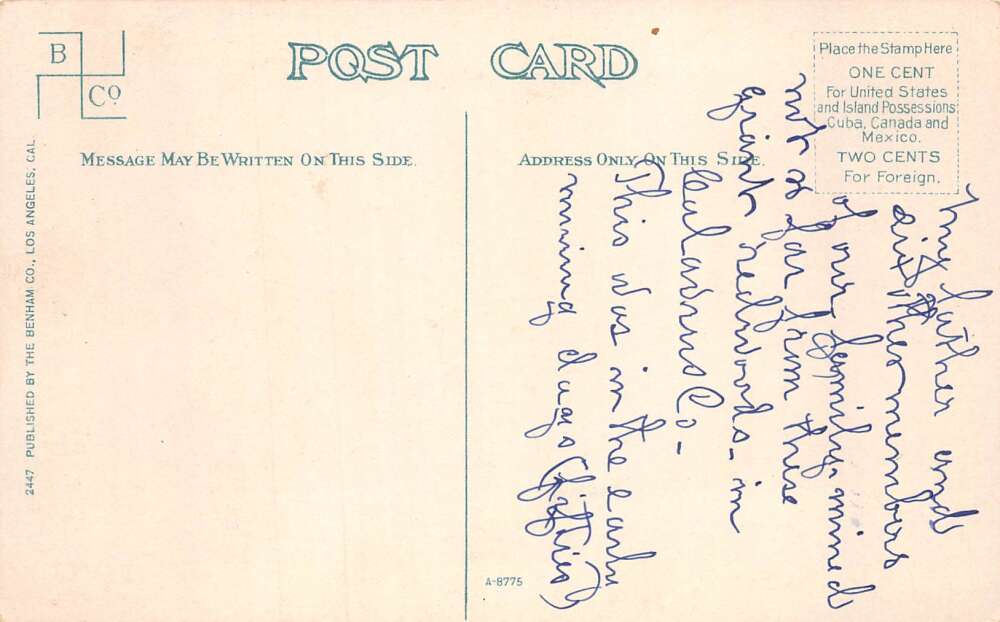 B
Co
POST CARD
Place the Stamp Here
ONE CENT
For United States
and Island Possessions
Cuba, Canada and
Mexico.
TWO CENTS
For Foreign.
MESSAGE MAY BE WRITTEN ON THIS SIDE.
ADDRESS ONLY ON THIS SIDE.
2447 PUBLISHED BY THE BENHAM CO., LOS ANGELES, CAL.
A-8775
My father and
other members
of our family, mined
not so far from these
giant redwoods - in
Calavrus Co -
This was in the early
mining days (fifties)